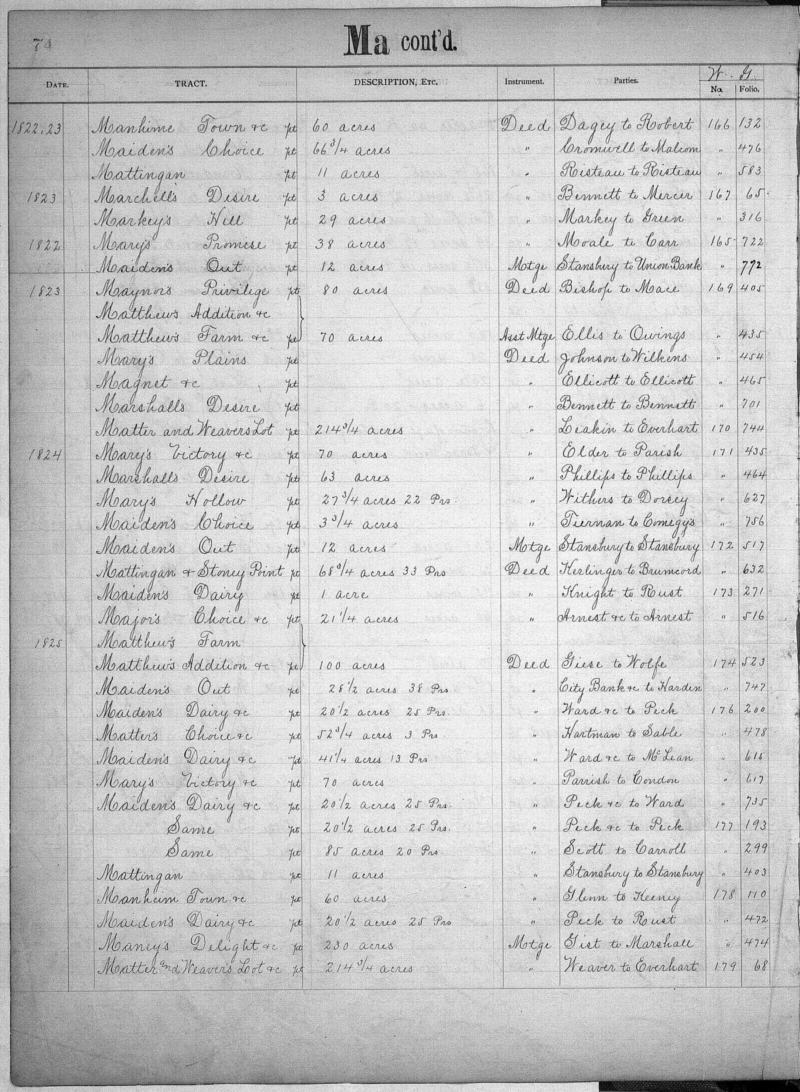 74 Ma cont'd.
W. G.
DATE. TRACT. DESCRIPTION, ETC. Instrument. Parties. No. Folio.
1822.23 Manhime Town &c pt 60 acres Deed Dagey to Robert 166 132
Maiden's Choice pt 66 3/4 acres " Cromwell to Malcom " 476
Mattingan pt 11 acres " Risteau to Risteau " 583
1823 Marchell's Desire pt 3 acres " Bennett to Mercer 167 65
Markey's Hill pt 29 acres " Markey to Green " 316
1822 Mary's Promise pt 38 acres " Moale to Carr 165 722
Maiden's Out pt 12 acres Mtge Stansbury to Union Bank " 772
1823 Maynor's Privilige pt 80 acres Deed Bishop to Mace 169 405
Matthews Addition &c
Matthew's Farm &c pt 70 acres Asst Mtge Ellis to Owings " 435
Mary's Plains pt Deed Johnson to Wilkins " 454
Magnet &c pt " Ellicott to Ellicott " 465
Marshalls Desire pt " Bennett to Bennett " 701
Matter and Weavers Lot pt 214 3/4 acres " Leakin to Everhart 170 744
1824 Mary's Victory &c pt 70 acres " Elder to Parish 171 435
Marshalls Desire pt 63 acres " Phillips to Phillips " 464
Mary's Hollow pt 27 3/4 acres 22 Prs. " Withers to Dorsey " 627
Maiden's Choice pt 3 3/4 acres " Tiernan to Comegys " 756
Maiden's Out pt 12 acres Mtge Stansbury to Stansbury 172 517
Mattingan & Stoney Point pt 68 3/4 acres 33 Prs Deed Kerlinger to Brumcord " 632
Maiden's Dairy pt 1 acre " Knight to Rust 173 271
Major's Choice &c pt 21 1/4 acres " Arnest &c to Arnest " 516
1825 Matthew's Farm
Matthew's Addition &c pt 100 acres Deed Giese to Wolfe 174 523
Maiden's Out pt 28 1/2 acres 38 Prs " City Bank &c to Harden " 747
Maiden's Dairy &c pt 20 1/2 acres 25 Prs. " Ward &c to Peck 176 200
Matter's Choice &c pt 52 3/4 acres 3 Prs " Hartman to Sable " 478
Maiden's Dairy &c pt 41 1/4 acres 13 Prs " Ward &c to McLean " 616
Mary's Victory &c pt 70 acres " Parrish to Condon " 617
Maiden's Dairy &c pt 20 1/2 acres 25 Prs. " Peck &c to Ward " 735
Same pt 20 1/2 acres 25 Prs. " Peck &c to Peck 177 193
Same pt 85 acres 20 Prs " Scott to Carroll " 299
Mattingan pt 11 acres " Stansbury to Stansbury " 403
Manheim Town &c pt 60 acres " Glenn to Keeney 178 110
Maiden's Dairy &c pt 20 1/2 acres 25 Prs " Peck to Rust " 472
Maney's Delight &c pt 230 acres Mtge Gist to Marshall " 474
Matter and Weaver's Lot &c pt 214 3/4 acres " Weaver to Everhart 179 68